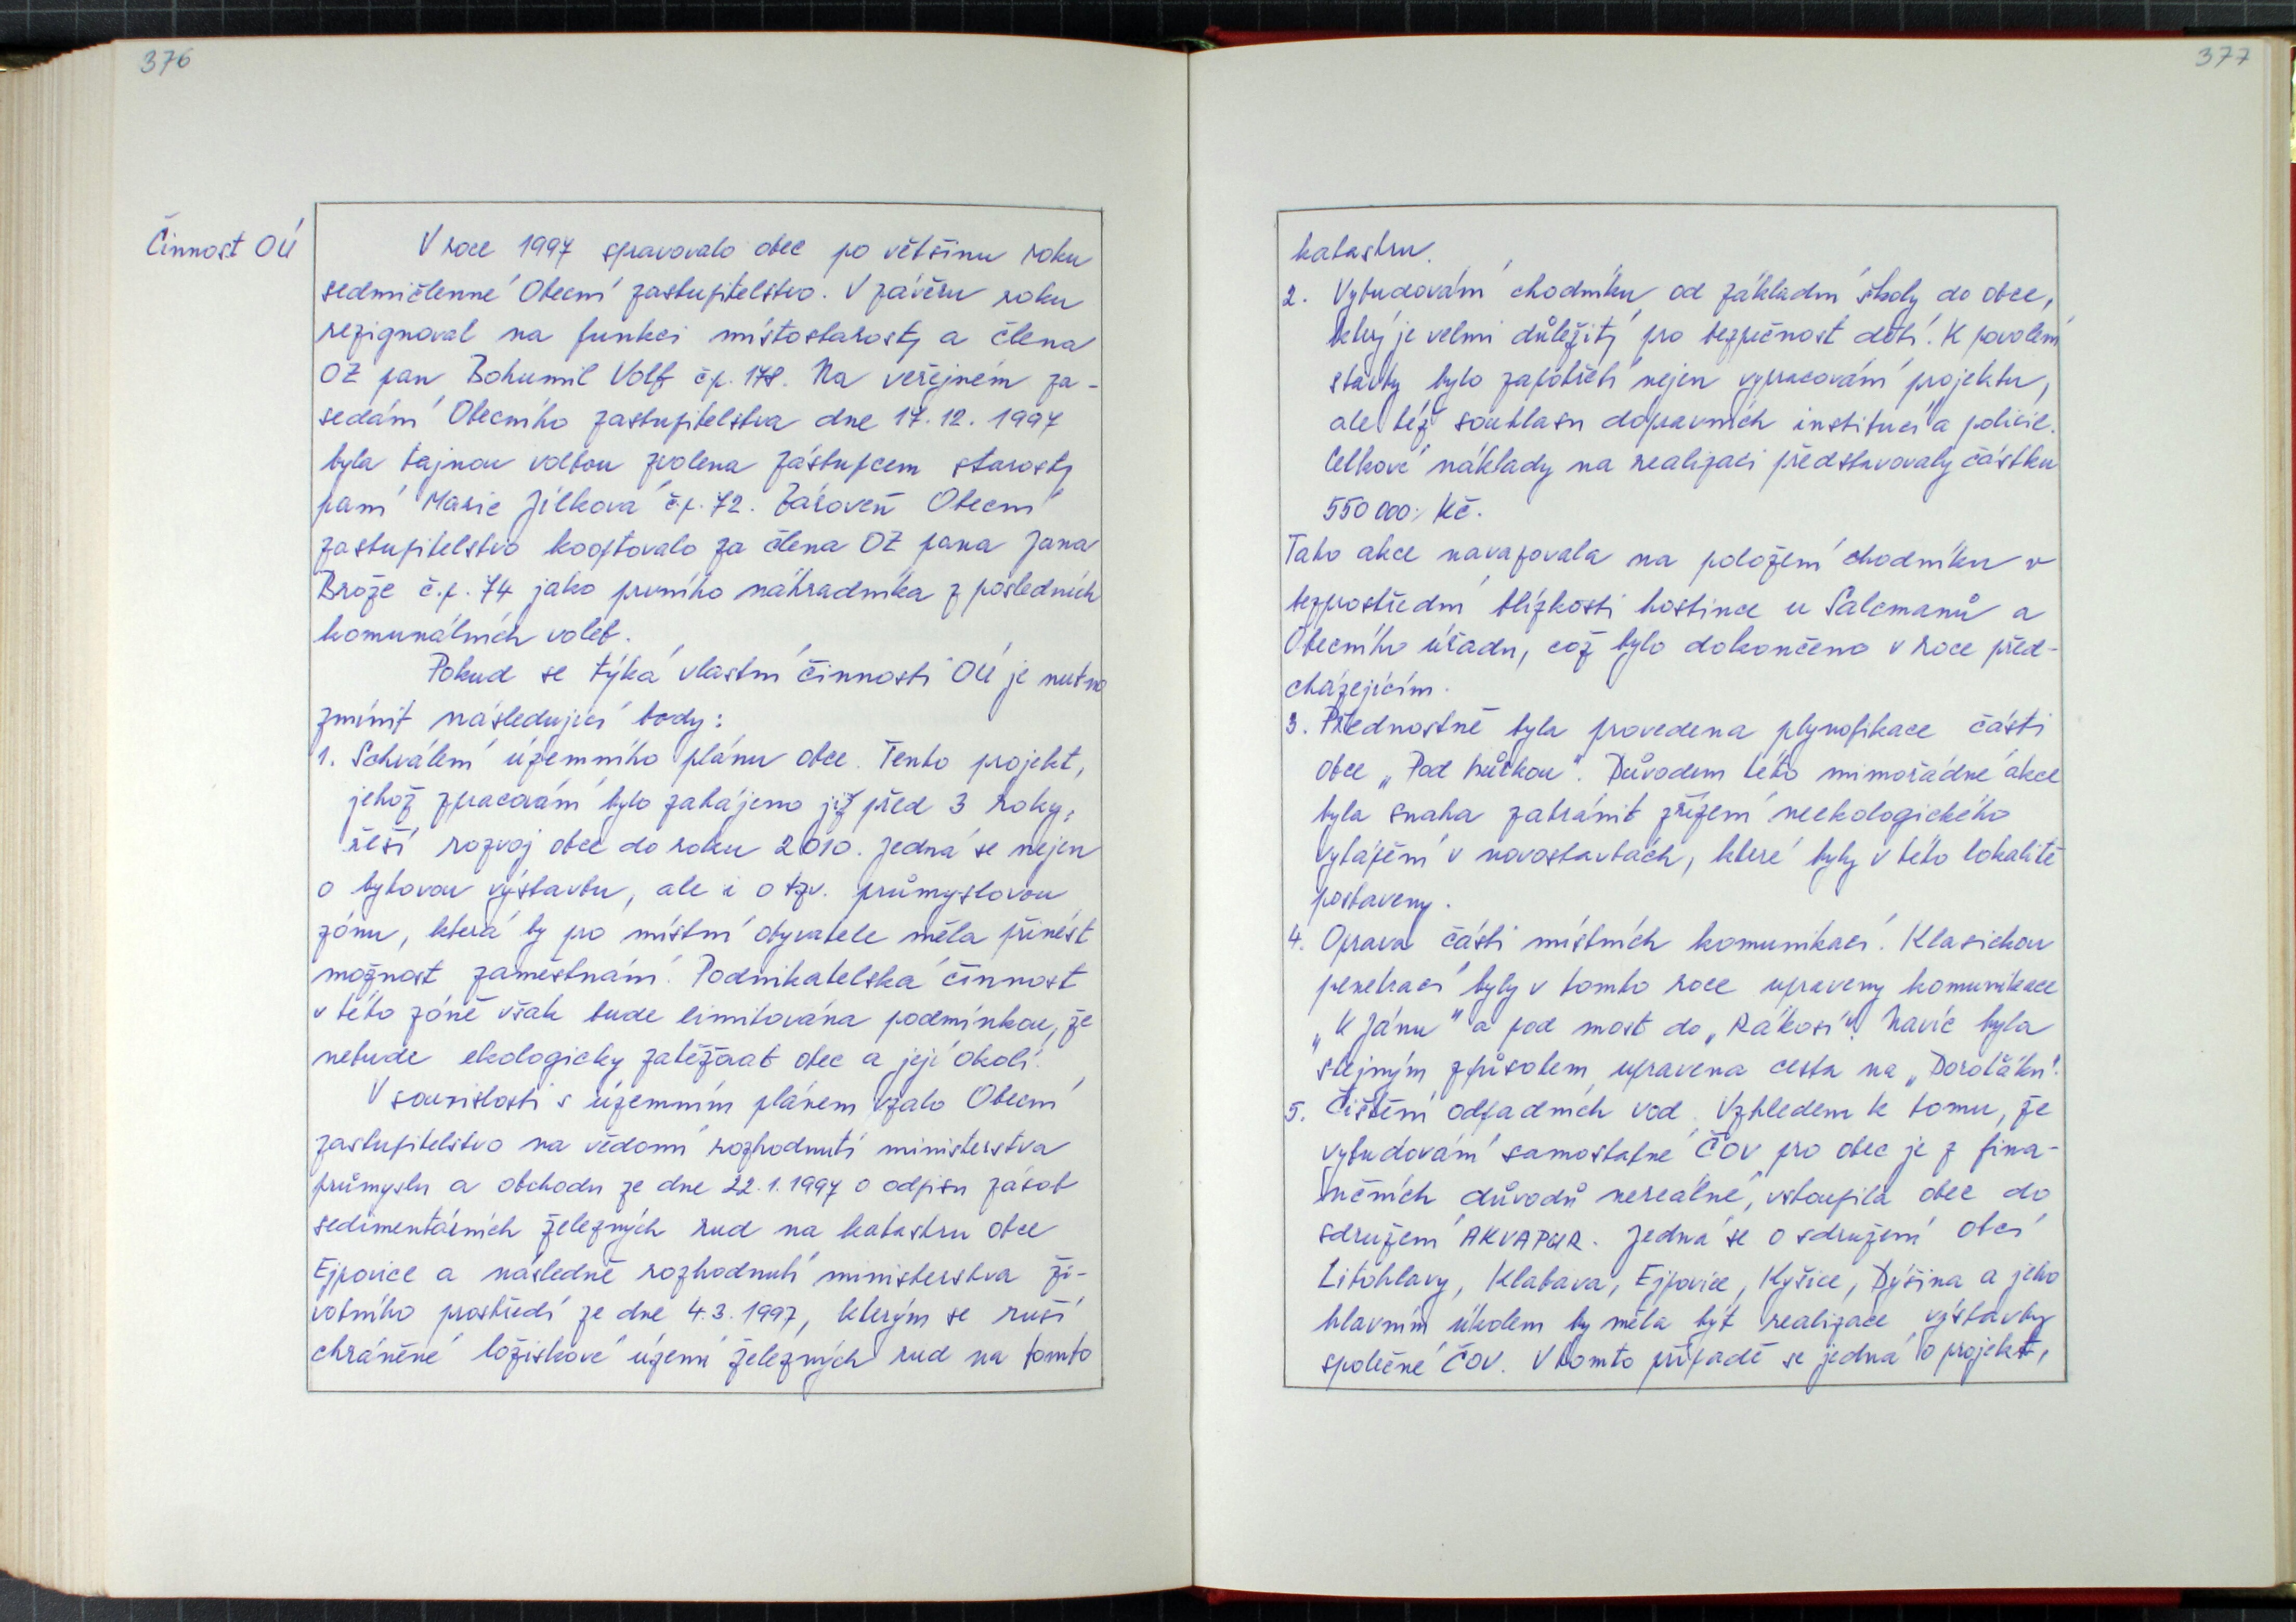 376
Činnost OÚ
V roce 1997 spravovalo obec po většinu roku
sedmičlenné Obecní zastupitelstvo. V závěru roku
rezignoval na funkci místostarosty a člena
OZ pan Bohumil Volf čp. 178. Na veřejném za-
sedání Obecního zastupitelstva dne 17.12.1997
byla tajnou volbou zvolena zástupcem starosty
paní Marie Jílková č.p. 72. Zároveň Obecní
zastupitelstvo kooptovalo za člena OZ pana Jana
Brože č.p. 74 jako prvního náhradníka z posledních
komunálních voleb.
Pokud se týká vlastní činnosti OÚ je nutno
zmínit následující body:
1. Schválení územního plánu obce. Tento projekt,
jehož zpracování bylo zahájeno již před 3 roky,
řeší rozvoj obce do roku 2010. Jedná se nejen
o bytovou výstavbu, ale i o tzv. průmyslovou
zónu, která by pro místní obyvatele měla přinést
možnost zaměstnání. Podnikatelská činnost
v této zóně však bude limitována podmínkou, že
nebude ekologicky zatěžovat obec a její okolí.
V souvislosti s územním plánem vzalo Obecní
zastupitelstvo na vědomí rozhodnutí ministerstva
průmyslu a obchodu ze dne 22.1.1997 o odpisu zásob
sedimentárních železných rud na katastru obce
Ejpovice a následně rozhodnutí ministerstva ži-
votního prostředí ze dne 4.3.1997, kterým se ruší
chráněné ložiskové území železných rud na tomto
377
katastru.
2. Vybudování chodníku od základní školy do obce,
který je velmi důležitý pro bezpečnost dětí. K povolení
stavby bylo zapotřebí nejen vypracování projektu,
ale též souhlasu dopravních institucí a policie.
Celkové náklady na realizaci představovaly částku
550 000,- Kč.
Tato akce navazovala na položení chodníku v
bezprostřední blízkosti hostince u Salcmanů a
Obecního úřadu, což bylo dokončeno v roce před-
cházejícím.
3. Přednostně byla provedena plynofikace části
obce „Pod hůrkou". Důvodem této mimořádné akce
byla snaha zabránit zřízení neekologického
vytápění v novostavbách, které byly v této lokalitě
postaveny.
4. Oprava části místních komunikací. Klasickou
penetrací byly v tomto roce upraveny komunikace
„K Jánu" a pod most do „Rákosí". Navíc byla
stejným způsobem upravena cesta na „Doroťáku".
5. Čištění odpadních vod. Vzhledem k tomu, že
vybudování samostatné ČOV pro obec je z fina-
nčních důvodů nereálné, vstoupila obec do
sdružení AKVAPUR. Jedná se o sdružení obcí
Litohlavy, Klabava, Ejpovice, Kyšice, Dýšina a jeho
hlavním úkolem by měla být realizace výstavby
společné ČOV. V tomto případě se jedná o projekt,